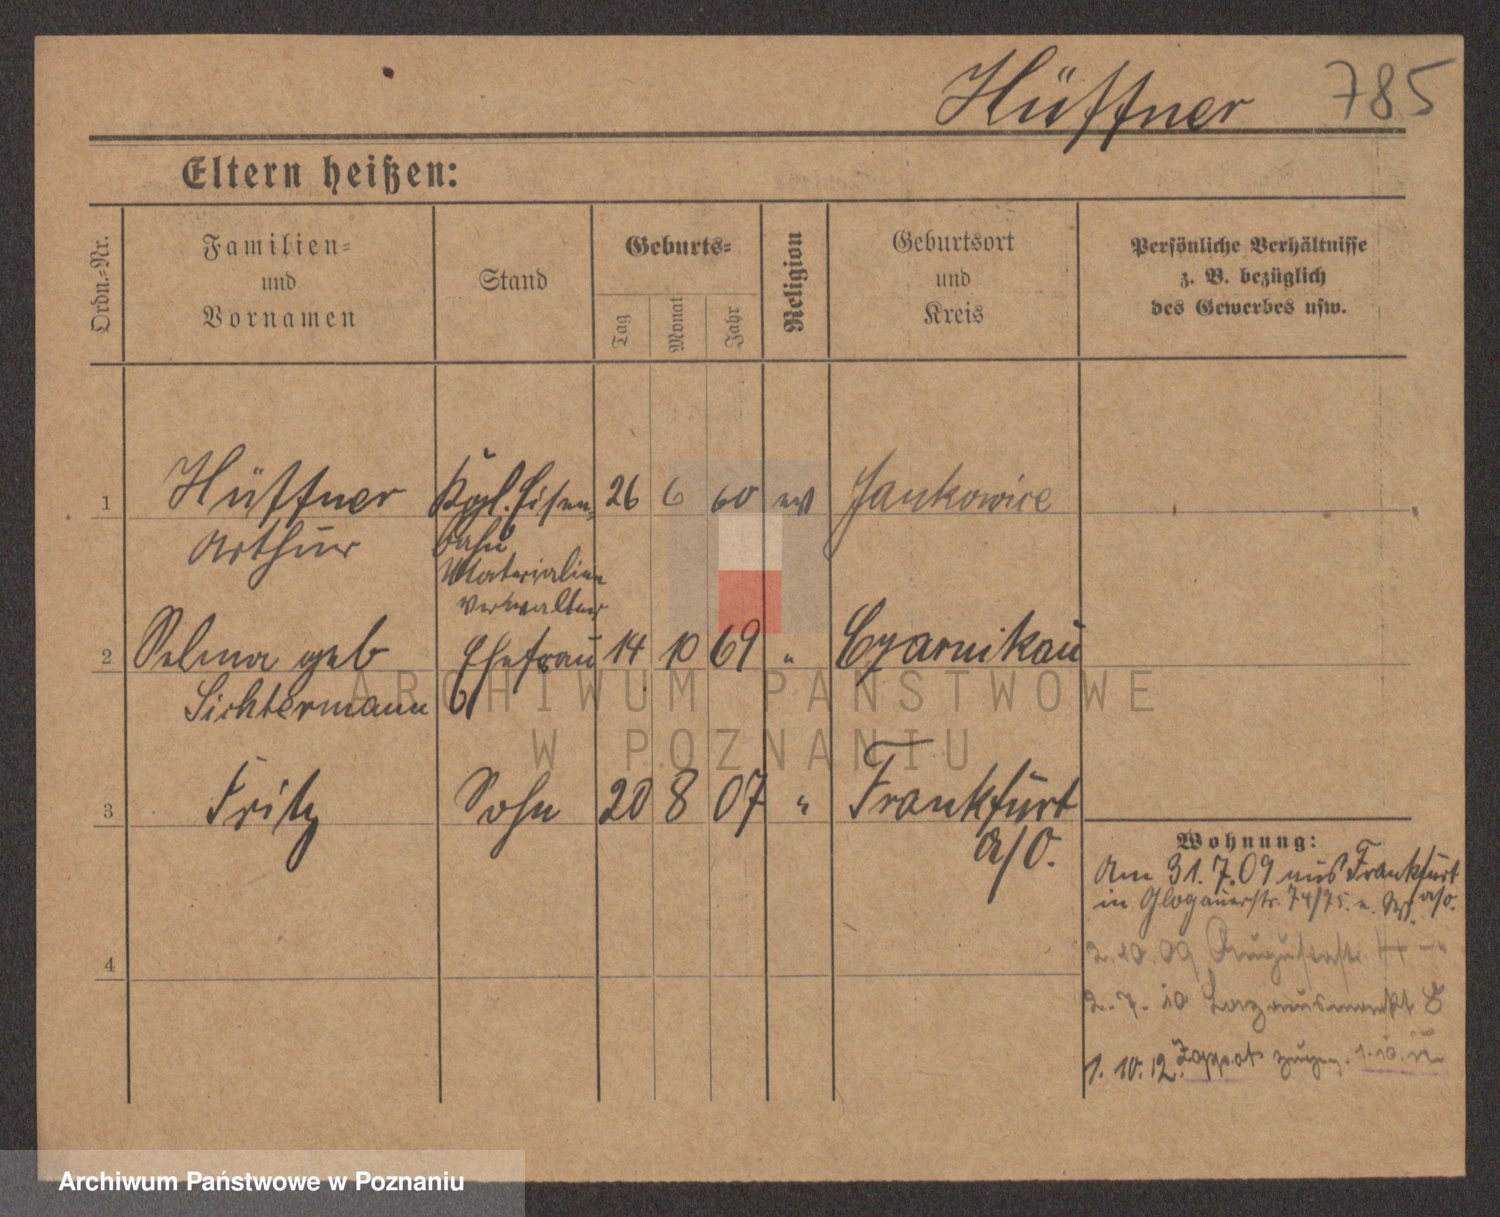 Hüffner 785
Eltern heißen:
Ordn.-Nr.
Familien-
und
Vornamen
Stand
Geburts-
Tag
Monat
Jahr
Religion
Geburtsort
und
Kreis
Persönliche Verhältnisse
z. B. bezüglich
des Gewerbes usw.
1 Hüffner Kgl. Eisen- 26 6 60 ev Jankowice
Arthur bahn
Materialien
verwalter
2 Selma geb Ehefrau 14 10 69 " Czarnikau
Sichtermann
ARCHIWUM PAŃSTWOWE
W POZNANIU
3 Fritz Sohn 20 8 07 " Frankfurt
a/O.
Wohnung:
Am 31.7.09 aus Frankfurt
a/O.
in Glogauerstr. 74/75.
4
2.10.09 Augustastr.
2.7.10 Lazarusmarkt 8
1.10.12. Zoppot
Archiwum Państwowe w Poznaniu